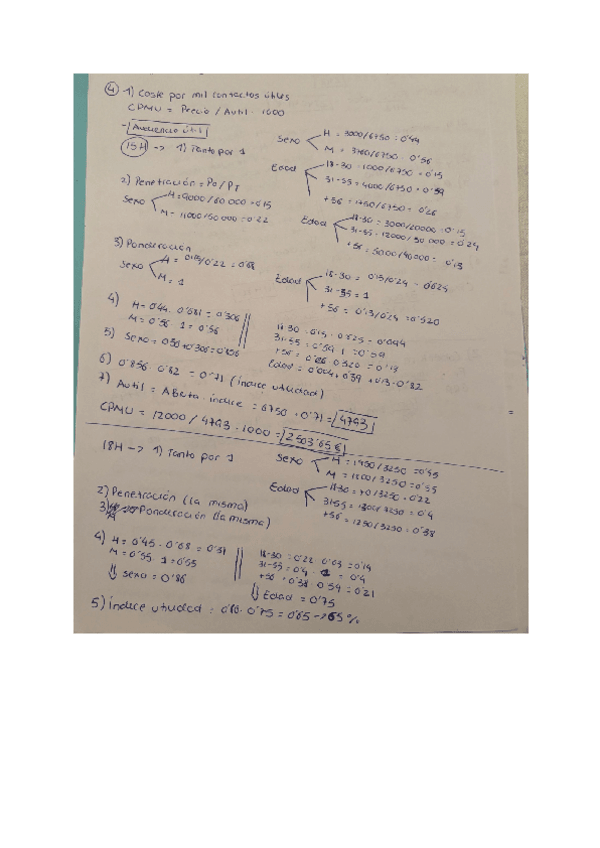 ④ 1) Coste por mil contactos útiles
CPMU = Precio / Autil · 1000
- Audiencia útil
15H -> 1) Tanto por 1
Sexo H = 3000/6750 = 0'44
M = 3750/6750 = 0'56
Edad 18-30 = 1000/6750 = 0'15
31-55 = 4000/6750 = 0'59
+56 = 1750/6750 = 0'26
2) Penetración = Po/PT
Sexo H = 9000/60 000 = 0'15
M = 11000/50 000 = 0'22
Edad 18-30 = 3000/20000 = 0'15
31-55 = 12000/50 000 = 0'24
+56 = 5000/40000 = 0'13
3) Ponderación
Sexo H = 0'15/0'22 = 0'68
M = 1
Edad 18-30 = 0'15/0'24 = 0'625
31-55 = 1
+56 = 0'13/0'24 = 0'520
4) H = 0'44 · 0'681 = 0'306
M = 0'56 · 1 = 0'56
18-30 = 0'15 · 0'625 = 0'094
31-55 = 0'59 · 1 = 0'59
+56 = 0'26 · 0'520 = 0'13
5) Sexo = 0'56 + 0'306 = 0'856
Edad = 0'094 + 0'59 + 0'13 = 0'82
6) 0'856 · 0'82 = 0'71 (índice utilidad)
7) Autil = Abruta · índice = 6750 · 0'71 = 4793
CPMU = 12000 / 4793 · 1000 = 2503'65€
18H -> 1) Tanto por 1
Sexo H = 1450/3250 = 0'45
M = 1800/3250 = 0'55
Edad 18-30 = /3250 = 0'22
31-55 = 1300/3250 = 0'4
+56 = 1250/3250 = 0'38
2) Penetración (la misma)
3) Ponderación (la misma)
4) H = 0'45 · 0'68 = 0'31
M = 0'55 · 1 = 0'55
⇓ Sexo = 0'86
18-30 = 0'22 · 0'63 = 0'14
31-55 = 0'4 · 1 = 0'4
+56 = 0'38 · 0'54 = 0'21
⇓ Edad = 0'75
5) Índice utilidad = 0'86 · 0'75 = 0'65 -> 65%